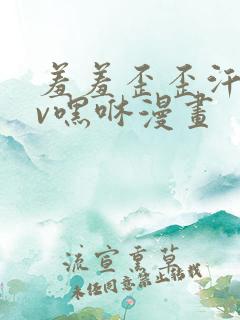 羞羞歪歪汗
v嘿咻漫畫
流宣熏草
未经同意禁止转载